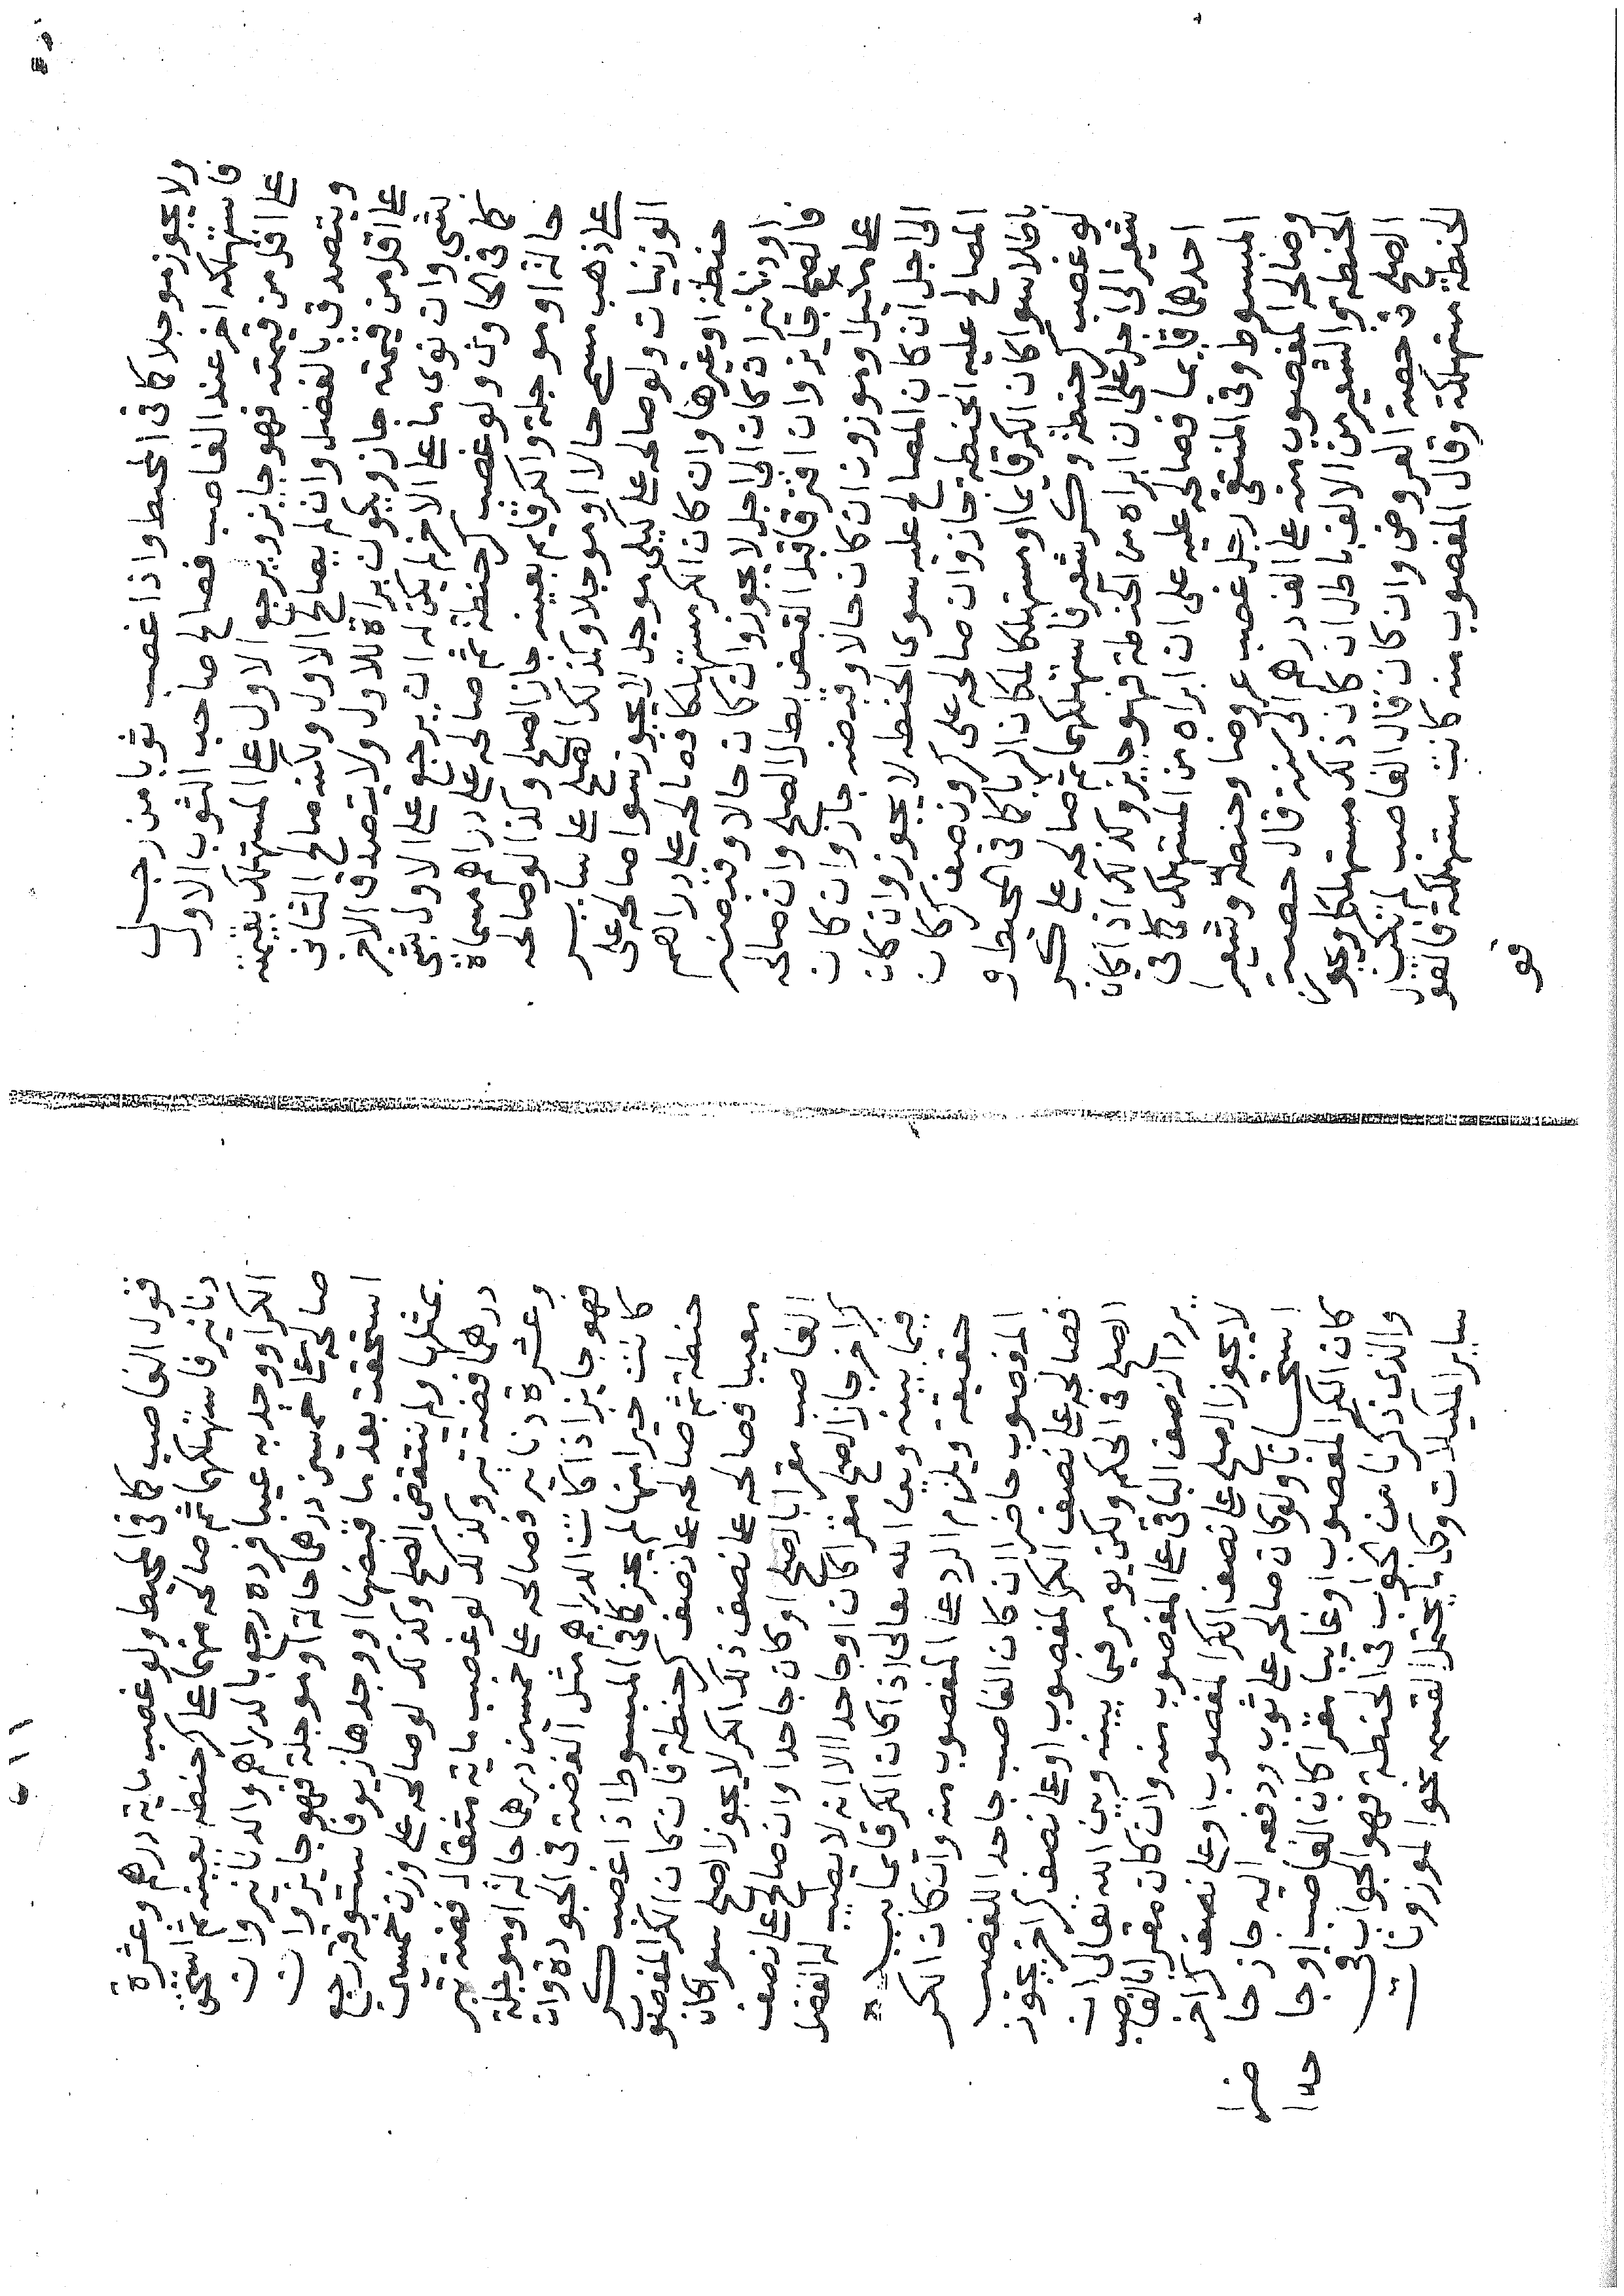 ولا يجوز موجلا كما فى المحيط واذا غصب ثوبا من رجل
فاستهلكه اخر عند الغاصب فصالح صاحب الثوب الاول
على اقل من قيمته فهو جايز ويرجع الاول على المستهلك بقيمته
ويتصدق بالفضل وان لم يصالح الاول ولكنه صالح الثانى
على اقل من قيمته جاز ويكون براة للاول ولا يتصدق الاخر
بشى وان نوى ما على الاخر لم يكن له ان يرجع على الاول بشى
كما فى الحاوى ولو غصب كر حنطة ثم صالحه على دراهم مسماة
حالة او موجلة والكر قايم بعينه جاز الصلح وكذا لو صالحه
على ذهب مسمى حالا او موجلا وكذلك الصلح على ساير
الوزنيات ولو صالحه على كيلى موجل لا يجوز سوا صالحه على
حنطة او غيرها وان كان الكر مستهلكا فصالحه على دراهم
او دنانير ان كان الى اجل لا يجوز وان كان حالا وقبضه
فالصلح جايز وان افترقا قبل القبض بطل الصلح وان صالحه
على مكيل او موزون ان كان حالا وقبضه جاز وان كان
الى اجل ان كان المصالح عليه سوى الحنطه لا يجوز وان كان
المصالح عليه الحنطة جاز وان صالحه على كر ونصف كر كان
باطلا سوا كان الكر قايما او مستهلكا لمكان الربا كما فى المحيط و
لو غصب كر حنطة وكر شعير فاستهلكهما ثم صالحه على كر
شعير الى اجل على ان ابراه من الحنطة فهو جايز وكذلك اذا كان
احدهما قايما فصالحه عليه على ان ابراه من المستهلك كما فى
المبسوط وفى المنتقى رجل غصب عروضا وحنطة وشعيرا
وصالحه المغصوب منه على الف درهم الى سنة قال حصة
الحنطه والشعير من الالف باطل ان كان ذلك مستهلكا ويجوز
الصلح فى حصة العروض وان كان قال الغاصب لم تكن
الحنطة مستهلكة وقال المغصوب منه كانت مستهلكة فالقول
قو
قول الغاصب كما فى المحيط ولو غصب ماية درهم وعشرة
دنانير فاستهلكهما ثم صالحه منهما على كر حنطه بعينه ثم استحق
الكر او وجد به عيبا فرده رجع بالدراهم والدنانير وان
صالحه على خمسين درهما حالة او موجلة فهو جايز وان
استحقت بعد ما قبضها او وجدها زيوفا او ستوقه رجع
بمثلها ولم ينتقض الصلح وكذلك لو صالحه على وزن خمسين
درهما فضة تبر وكذلك لو غصب ماية مثقال فضة تبر
وعشرة دنانير فصالحه على خمسين درهما حالة او موجلة
فهو جايز اذا كانت الدراهم مثل الفضة فى الجودة وان
كانت خيرا منها لم يجز كما فى المبسوط اذا غصب كر
حنطة ثم صالحه على نصف كر حنطة فان كان الكر المغصوب
معيبا فصالحه على نصف ذلك الكر لا يجوز الصلح سوا كان
الغاصب مقرا بالصلح او كان جاحدا وان صالح على نصف
كر اخر جاز الصلح مقرا كان او جاحدا الا انه لا يطيب له الفضل
فيما بينه وبين الله تعالى اذا كان الكر قايما بيده
حقيقة ويلزم الرد على المغصوب منه وان كان الكر
المغصوب حاضرا ان كان الغاصب جاحدا للغصب
فصالحه على نصف الكر المغصوب او على نصف كر اخر يجوز
الصلح فى الحكم ولكن يومر فيما بينه وبين الله تعالى ان
يرد النصف الباقى على المغصوب منه وان كان مقرا بالغصب
لا يجوز الصلح على نصف الكر المغصوب او على نصف كر اخر
استحسانا ولو كان صالحه على ثوب ودفعه اليه جاز حا
ضرا
كان الكر المغصوب او غايبا مقرا كان الغاصب او جا
حدا
والذى ذكرنا من الجواب فى الحنطة فهو الجواب فى
ساير المكيلات وكل ما يحتمل القسمه نحو الموزونات